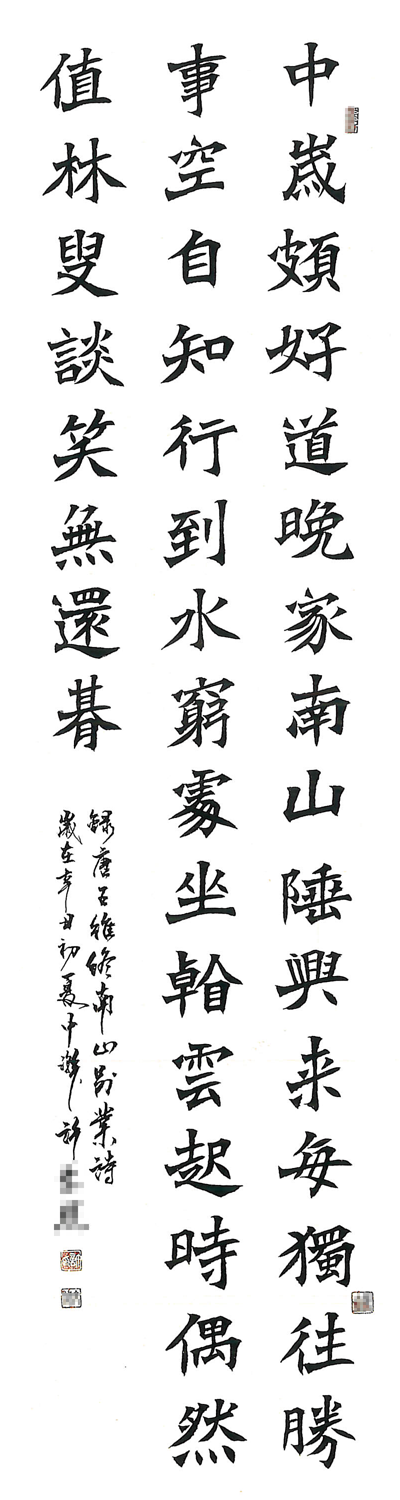 中嵗頗好道晚家南山陲興来每獨徃勝
事空自知行到水窮處坐看雲起時偶然
值林叟談笑無還㫷
録唐王維終南山別業詩
歲在辛丑初夏中澣許